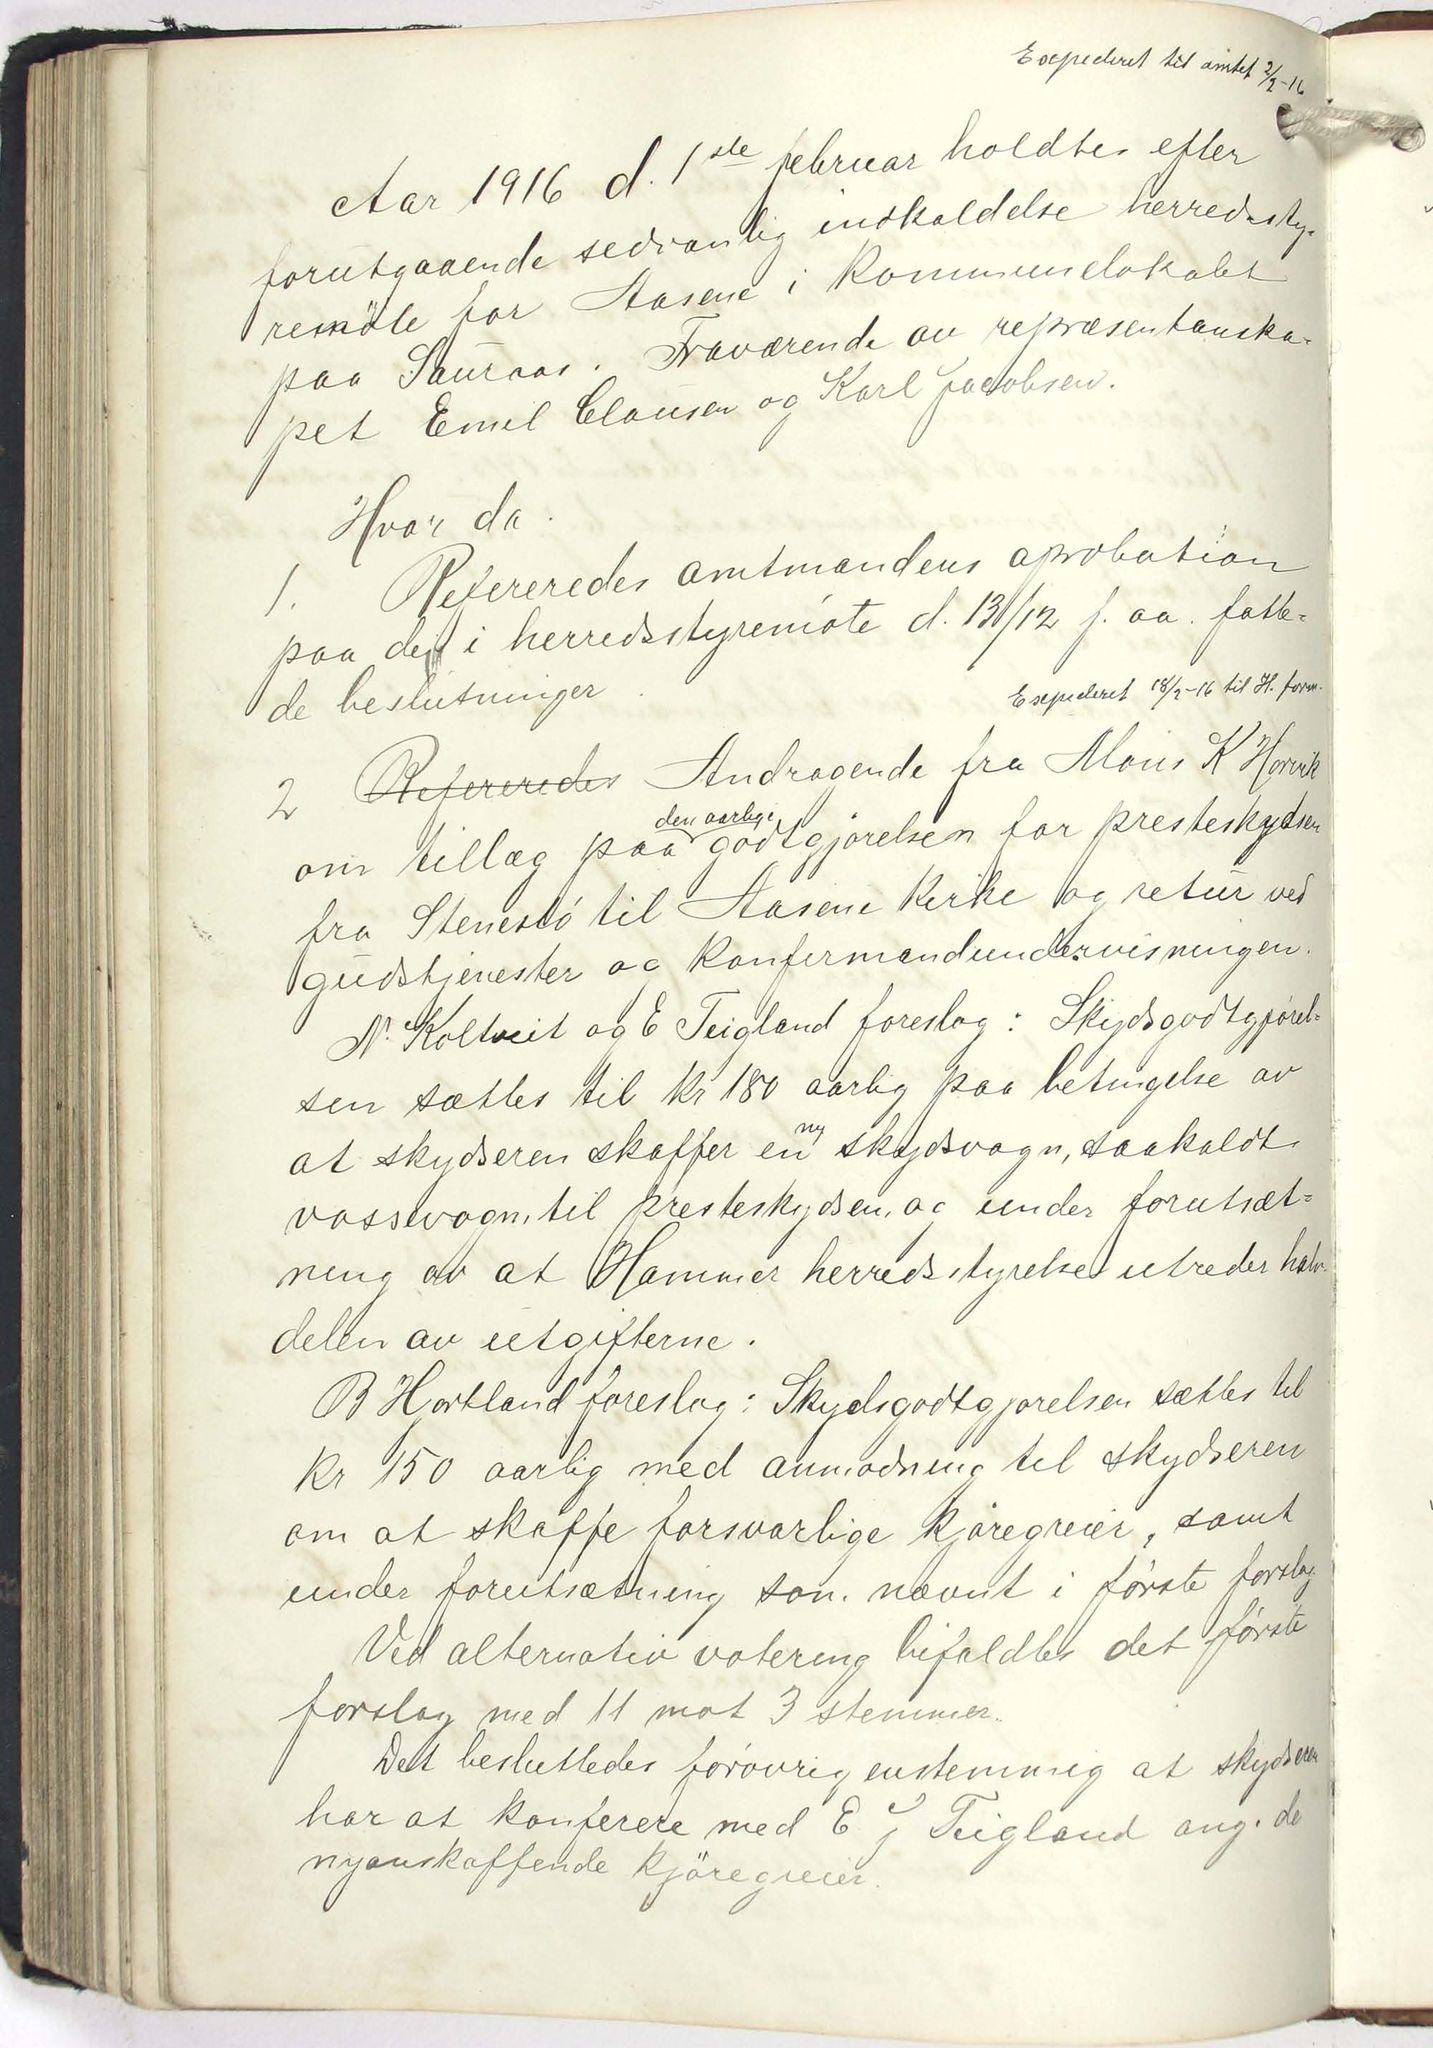 Expederet til amtet 2/2-16
Aar 1916 d. 1ste februar holdtes efter
forutgaaende sedvanlig indkaldelse herredssty-
remöte for Aasene i Kommunelokalet
paa Sauraas. Fraværende av repræsentanska-
pet Emil Clausen og Karl Jacobsen.
Hvor da.
1. Refereredes amtmandens aprobation
paa de i herredsstyremöte d. 13/12 f. aa. fatte-
de beslutninger.
Expederet 18/2-16 til H. form.
2 Refereredes Andragende fra Mons K Horvik
om tillæg paa den aarlige godtgjörelsen for presteskydsen
fra Stenestö til Aasene Kirke og retur ved
gudstjenester og konfermandundervisningen.
N. Koltveit og E Teigland foreslog: Skydsgodtgjörel-
sen sættes til kr 180 aarlig paa betingelse av
at skydseren skaffer en ny skydsvogn, saakaldt
vossevogn, til presteskydsen, og under forutsæt-
ning av at Hammer herredsstyrelse utreder halv-
delen av utgifterne.
B Hortland foreslog: Skydsgodtgjörelsen sættes til
kr 150 aarlig med anmodning til skydseren
om at skaffe forsvarlige kjöregreier, samt
under forutsætning som nævnt i förste forslag
Ved alternativ votering bifaldtes det förste
forslag med 11 mot 3 stemmer.
Det besluttedes forövrig enstemmig at skydseren
har at konferere med E J Teigland ang. de
nyanskaffende kjöregreier.